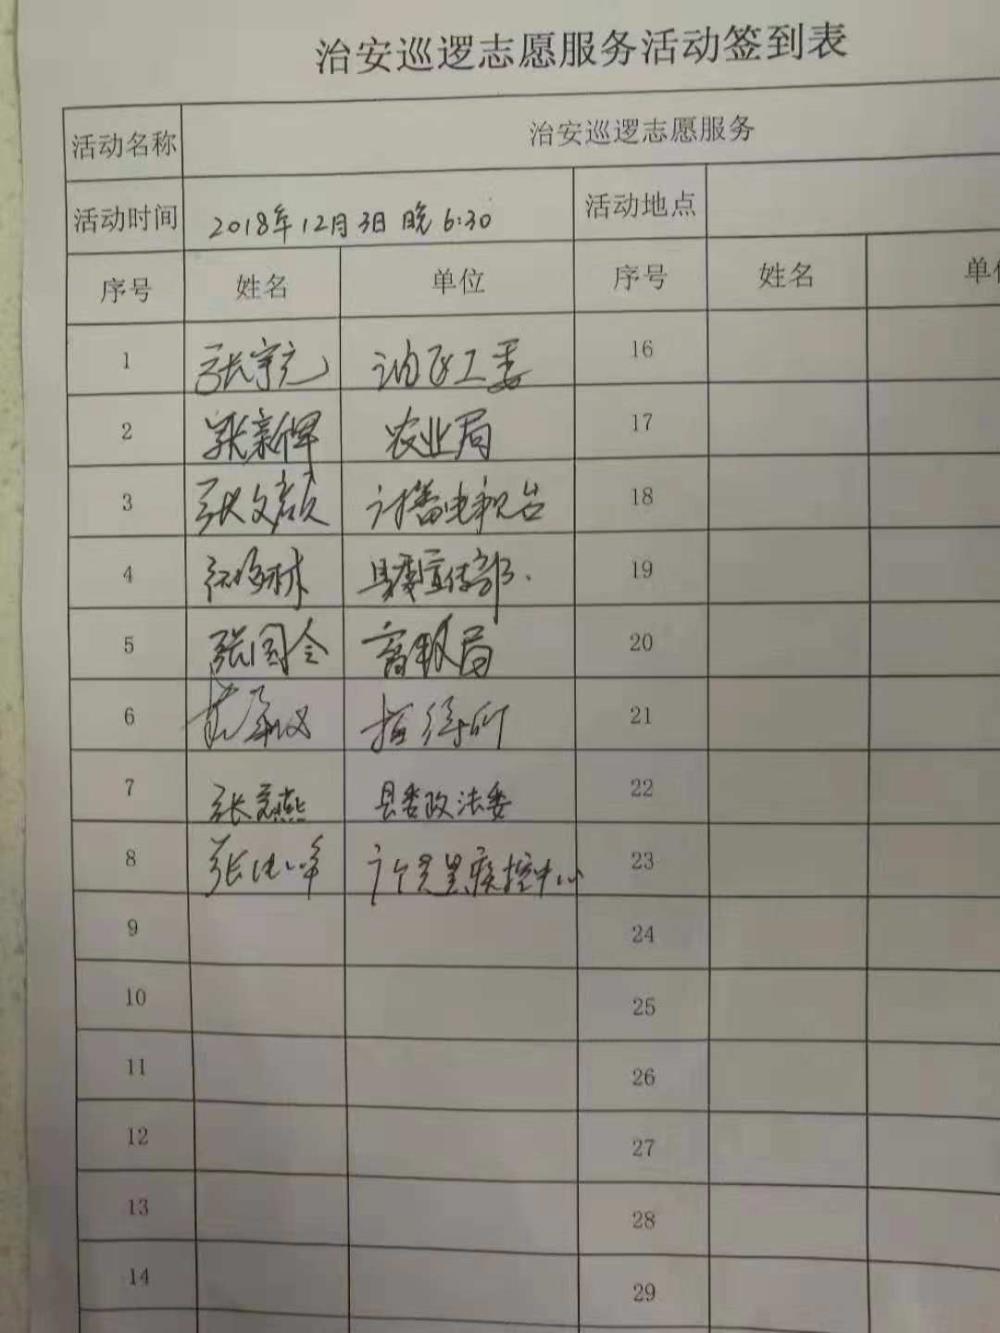 治安巡逻志愿服务活动签到表
活动名称 治安巡逻志愿服务
活动时间 2018年12月3日 晚 6:30 活动地点
序号 姓名 单位 序号 姓名 单
1 张宇元 工委 16
2 张新辉 农业局 17
3 张文 广播电视台 18
4 县委宣传部. 19
5 张国令 局 20
6 招待所 21
7 张彦燕 县委政法委 22
8 张 疾控中心 23
9 24
10 25
11 26
12 27
13 28
14 29